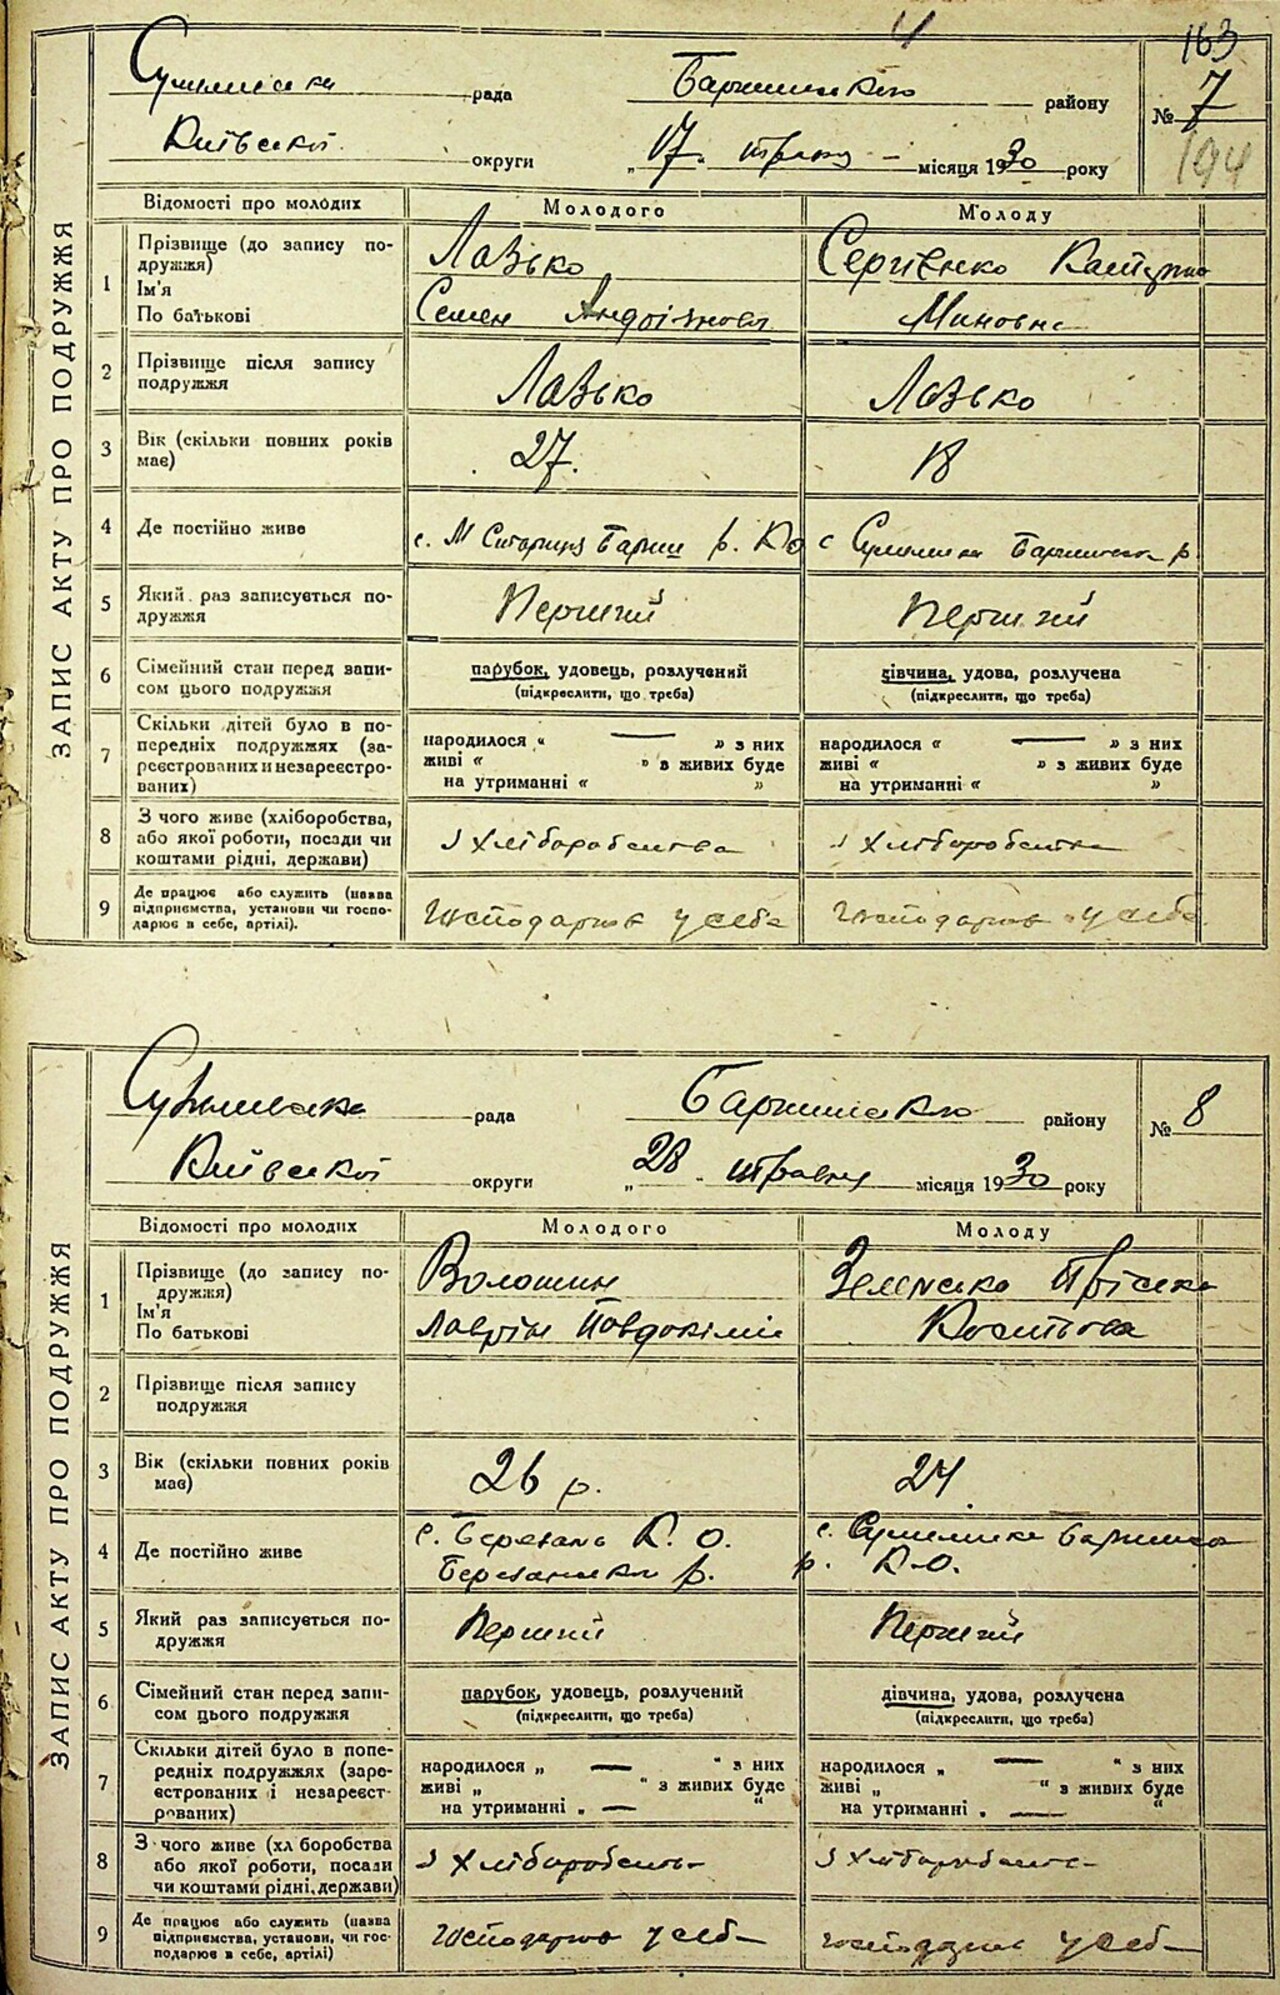 4
163
рада
Баришівського району
№ 7
Київської округи
„ 17. травня – місяця 1930 року
194
ЗАПИС АКТУ ПРО ПОДРУЖЖЯ
Відомості про молодих Молодого Молоду
1 Прізвище (до запису подружжя) Ім'я По батькові
Лазько
Семен
Сергієнко
Миновна
2 Прізвище після запису подружжя
Лазько Лазько
3 Вік (скільки повних років має)
27. 18
4 Де постійно живе
с. М Бариш р. К О с
5 Який раз записується подружжя
Перший Перший
6 Сімейний стан перед записом цього подружжя
парубок, удовець, розлучений дівчина, удова, розлучена
(підкреслити, що треба) (підкреслити, що треба)
7 Скільки дітей було в попередніх подружжях (зареєстрованих и незареєстрованих)
народилося „ — „ з них народилося „ — „ з них
живі „ „ в живих буде живі „ „ з живих буде
на утриманні „ „ на утриманні „ „
8 З чого живе (хліборобства, або якої роботи, посади чи коштами рідні, держави)
з хліборобства з хліборобства
9 Де працює або служить (назва підприємства, установи чи господарює в себе, артілі).
господарює у себе господарює у себе
рада
Баришівського району
№ 8
Київської округи
„ 28 травня місяця 1930 року
ЗАПИС АКТУ ПРО ПОДРУЖЖЯ
Відомості про молодих Молодого Молоду
1 Прізвище (до запису подружжя) Ім'я По батькові
Волошин
Лаврін
Пріська
Костьова
2 Прізвище після запису подружжя
3 Вік (скільки повних років має)
26 р. 24
4 Де постійно живе
с. Березань К. О.
р. с.
р. К.О.
5 Який раз записується подружжя
Перший Перший
6 Сімейний стан перед записом цього подружжя
парубок, удовець, розлучений дівчина, удова, розлучена
(підкреслити, що треба) (підкреслити, що треба)
7 Скільки дітей було в попередніх подружжях (зареєстрованих і незареєстрованих)
народилося „ — “ з них народилося „ — “ з них
живі „ “ з живих буде живі „ “ з живих буде
на утриманні „ — “ на утриманні „ — “
8 З чого живе (хліборобства або якої роботи, посади чи коштами рідні, держави)
з хліборобства з хліборобства
9 Де працює або служить (назва підприємства, установи, чи господарює в себе, артілі)
господарює у себе господарює у себе